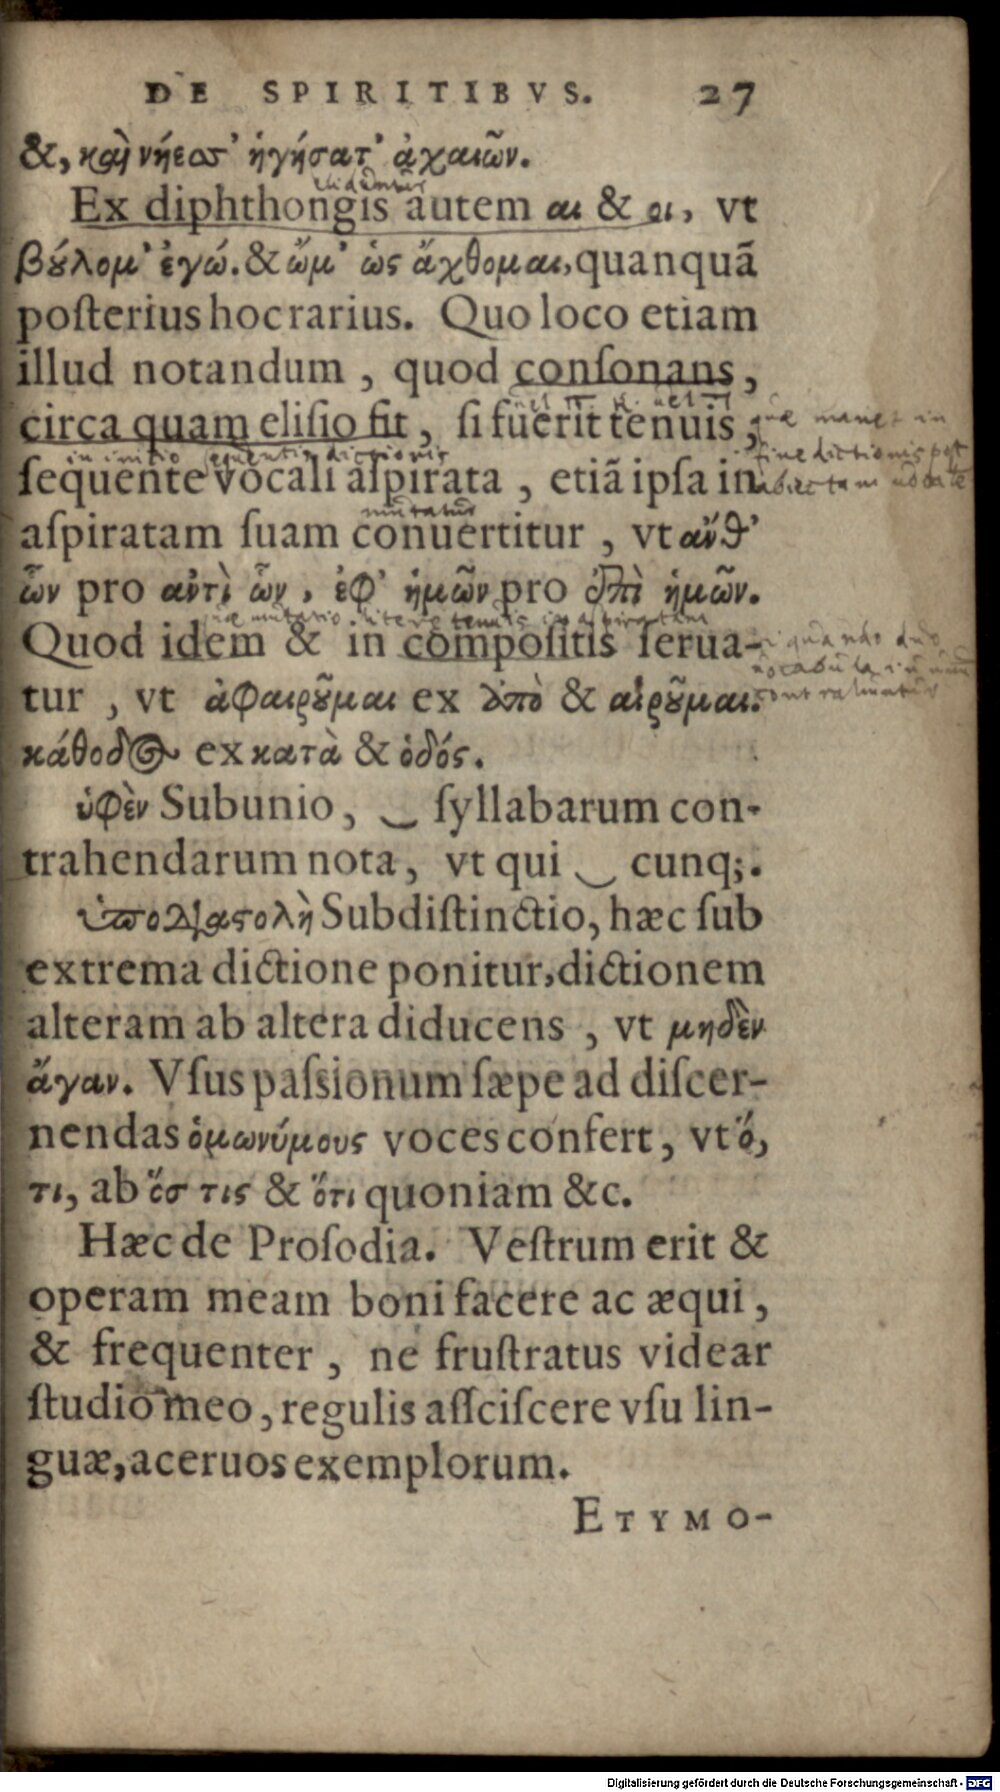 DE SPIRITIBVS. 27
&, καὶ νήεσσ᾽ ἡγήσατ᾽ ἀχαιῶν.
eliduntur
Ex diphthongis autem αι & οι, vt
βούλομ᾽ ἐγώ. & ὤμ᾽ ὡς ἄχθομαι, quanquā
poſterius hoc rarius. Quo loco etiam
illud notandum, quod conſonans,
circa quam eliſio fit, ſi fuerit tenuis,
quæ manet in
fine dictionis poſt
in initio sequentis dictionis
ſequente vocali aſpirata, etiā ipſa in
mutatur
aſpiratam ſuam conuertitur, vt ἀνθ᾽
ὧν pro ἀντὶ ὧν, ἐφ᾽ ἡμῶν pro ἐπὶ ἡμῶν.
mutatio literæ tenuis in aspiratam
Quod idem & in compoſitis ſerua-
quando duo
vocabula in unum
tur, vt ἀφαιροῦμαι ex ἀπὸ & αἱροῦμαι.
κάθοδος ex κατὰ & ὁδός.
ὑφὲν Subunio, ‿ ſyllabarum con-
trahendarum nota, vt qui ‿ cunq;.
ὑποδιαστολὴ Subdiſtinctio, hæc ſub
extrema dictione ponitur, dictionem
alteram ab altera diducens, vt μηδὲν
ἄγαν. Vſus paſsionum ſæpe ad diſcer-
nendas ὁμωνύμους voces confert, vt ὅ,
τι, ab ὅσ τις & ὅτι quoniam &c.
Hæc de Proſodia. Veſtrum erit &
operam meam boni facere ac æqui,
& frequenter, ne fruſtratus videar
ſtudio meo, regulis aſſciſcere vſu lin-
guæ, aceruos exemplorum.
ETYMO-
Digitalisierung gefördert durch die Deutsche Forschungsgemeinschaft - DFG